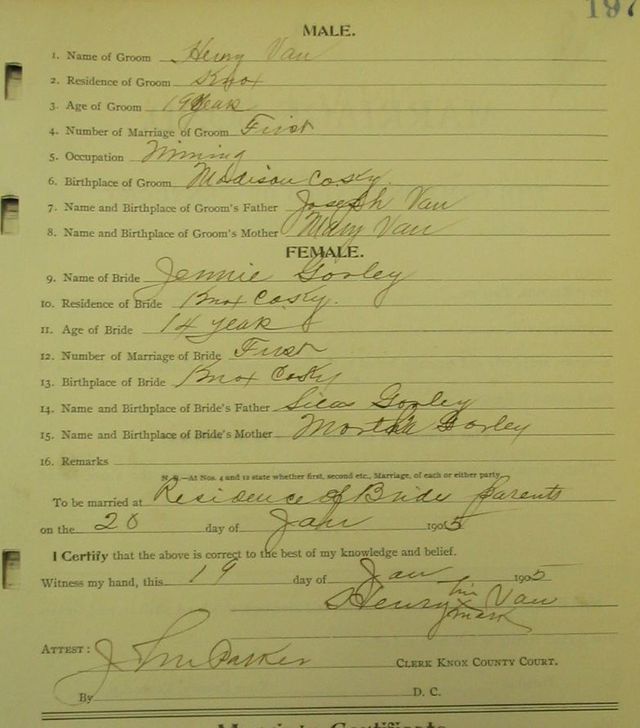 197
MALE.
1. Name of Groom Henry Van
2. Residence of Groom Knox
3. Age of Groom 19 years
4. Number of Marriage of Groom First
5. Occupation Mining
6. Birthplace of Groom Madison Co Ky.
7. Name and Birthplace of Groom's Father Joseph Van
8. Name and Birthplace of Groom's Mother Mary Van
FEMALE.
9. Name of Bride Jennie Gorley
10. Residence of Bride Knox Co Ky.
11. Age of Bride 14 years
12. Number of Marriage of Bride First
13. Birthplace of Bride Knox Co Ky
14. Name and Birthplace of Bride's Father Silas Gorley
15. Name and Birthplace of Bride's Mother Martha Gorley
16. Remarks
N. B.—At Nos. 4 and 12 state whether first, second etc., Marriage, of each or either party
To be married at Residence of Bride parents
on the 20 day of Jan 1905
I Certify that the above is correct to the best of my knowledge and belief.
Witness my hand, this 19 day of Jan 1905
Henry his x mark Van
ATTEST: Parker CLERK KNOX COUNTY COURT.
By D. C.
Marriage Certificate